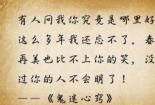 有人问我你究竟是哪里好
这么多年我还忘不了。春
再美也比不上你的笑,没
过你的人不会明了!
——《鬼迷心窍》